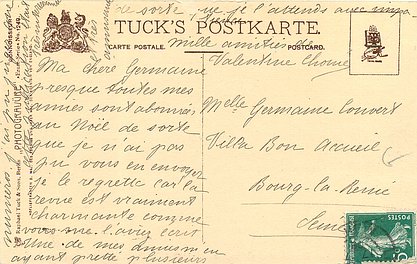 de sorte que je l'attends avec impa
TUCK'S POSTKARTE.
CARTE POSTALE.
POSTCARD.
mille amitiés
Valentine
Ma chère Germaine
presque toutes mes
amies sont abonnées
au Noël de sorte
que je n'ai pas
pu vous en envoyer
je le regrette car la
revue est vraiment
charmante comme
vous me l'aviez écrit
Une de mes amies m'en
ayant prêté plusieurs
numéros, j'ai pu
Melle Germaine Convert
Villa Bon Accueil
Bourg-la-Reine
Seine
PHOTOGRAVURE
POSTES
5